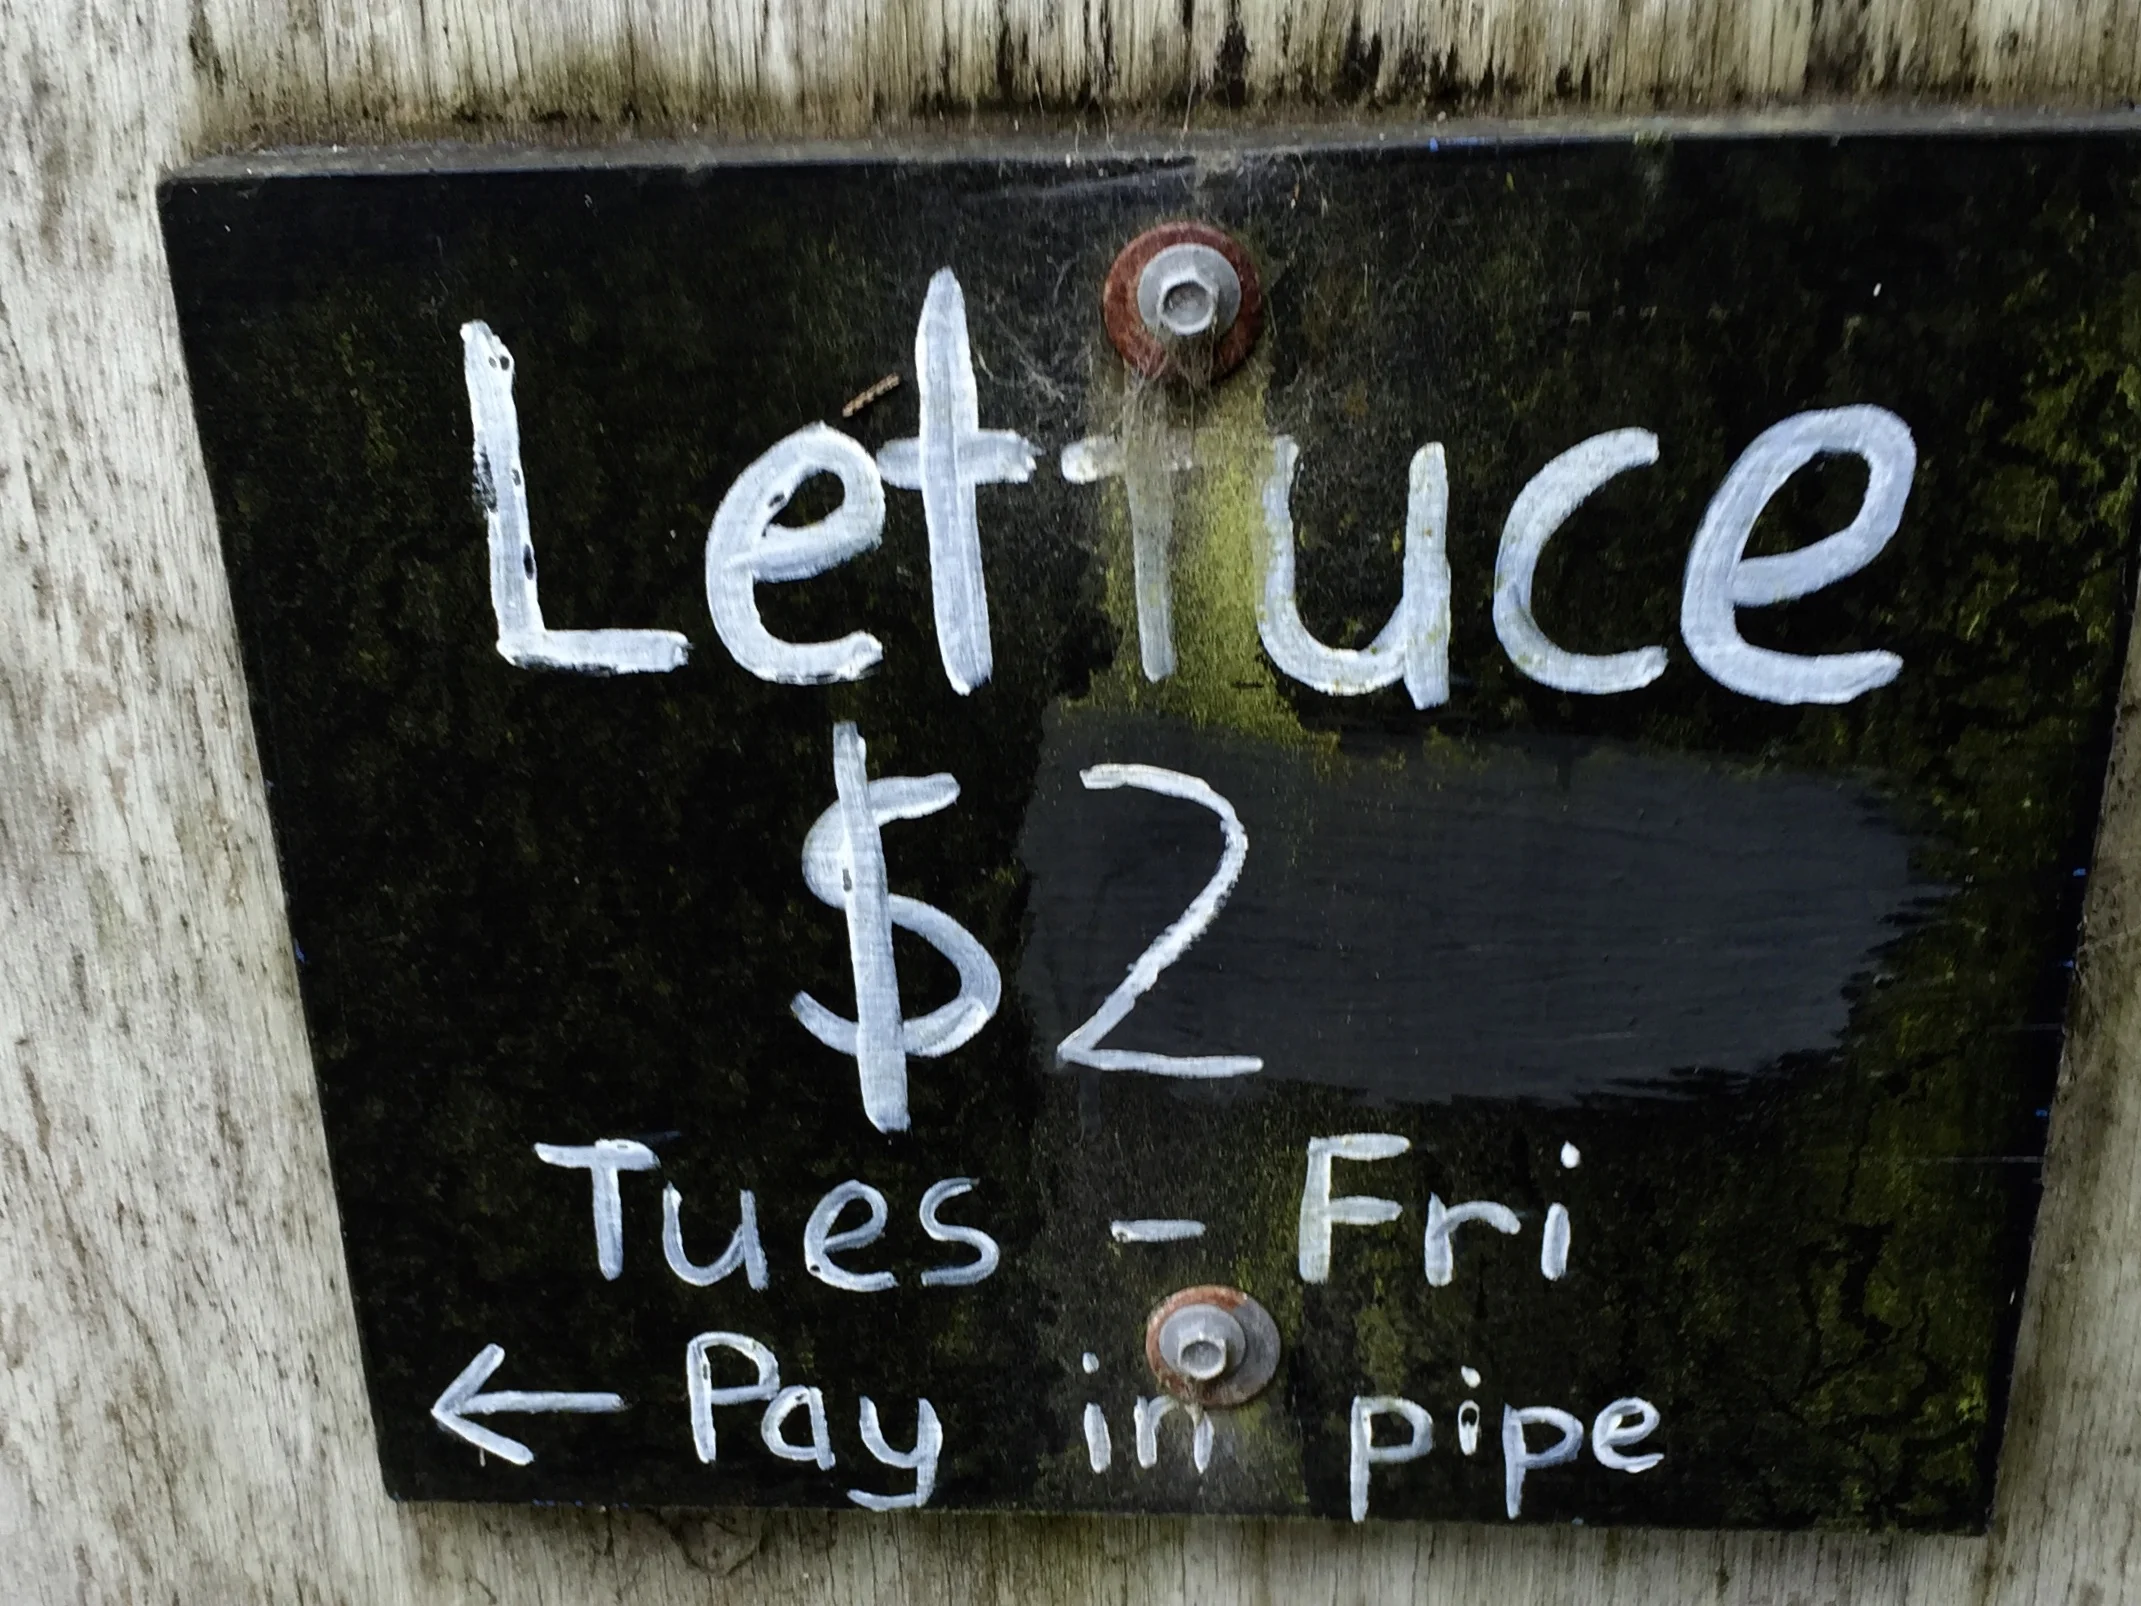 Lettuce
$2
Tues - Fri
← Pay in pipe